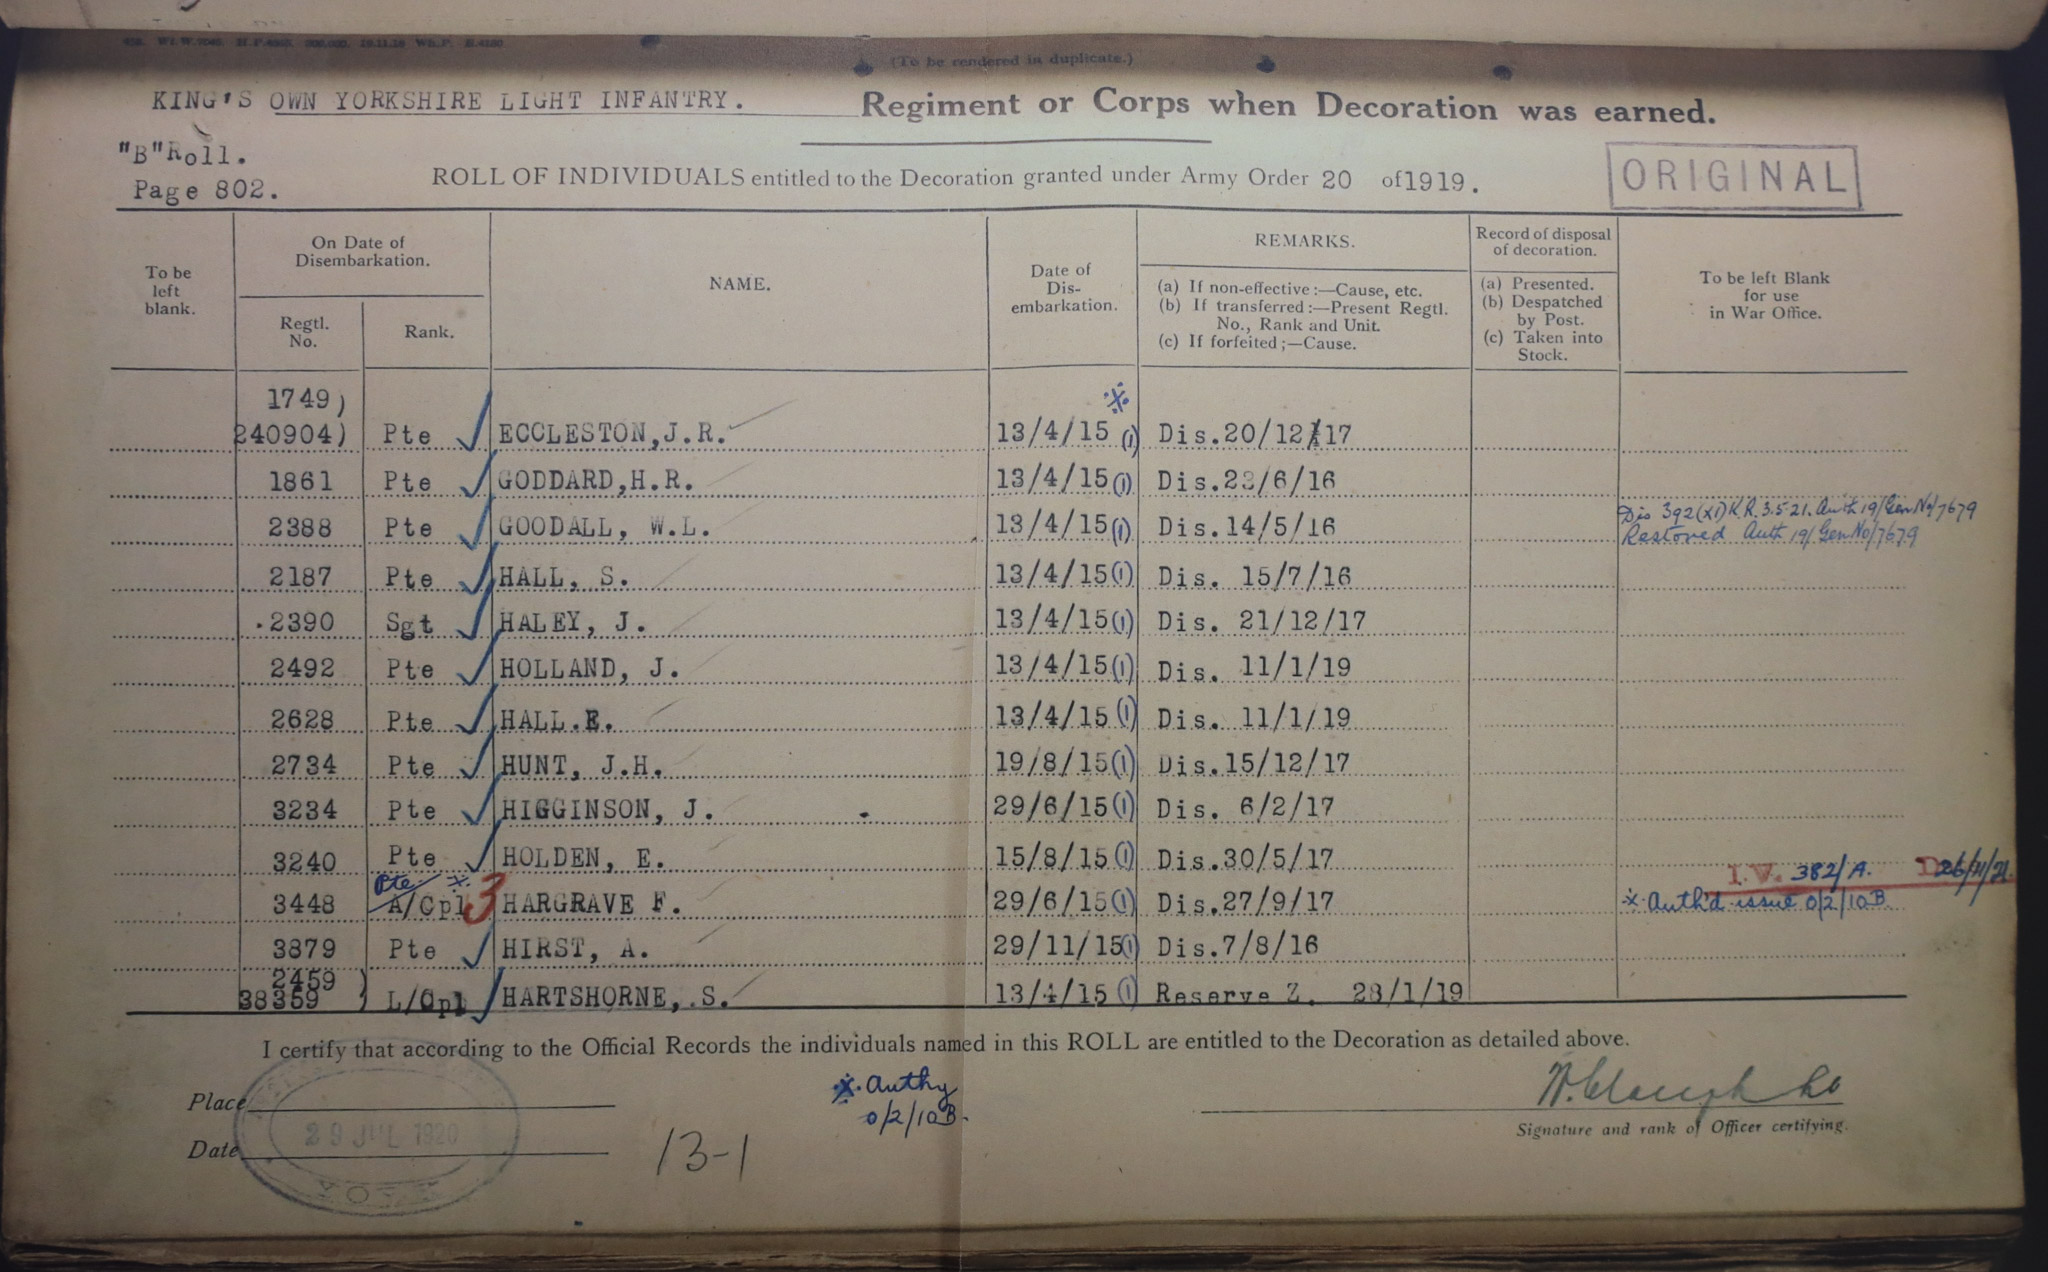 (To be rendered in duplicate.)
KING'S OWN YORKSHIRE LIGHT INFANTRY. Regiment or Corps when Decoration was earned.
"B"Roll.
Page 802.
ROLL OF INDIVIDUALS entitled to the Decoration granted under Army Order 20 of 1919.
ORIGINAL
To be left blank.
On Date of Disembarkation.
Regtl. No.
Rank.
NAME.
Date of Dis-embarkation.
REMARKS.
(a) If non-effective:—Cause, etc.
(b) If transferred:—Present Regtl. No., Rank and Unit.
(c) If forfeited;—Cause.
Record of disposal of decoration.
(a) Presented.
(b) Despatched by Post.
(c) Taken into Stock.
To be left Blank for use in War Office.
1749)
240904) Pte ECCLESTON,J.R. 13/4/15 (1) Dis.20/12/17
1861 Pte GODDARD,H.R. 13/4/15 (1) Dis.23/6/16
2388 Pte GOODALL, W.L. 13/4/15 (1) Dis.14/5/16 Dis 392(XI)K.R. 3.5.21. Auth 19/Gen No/7679
Restored Auth 19/Gen No/7679
2187 Pte HALL, S. 13/4/15 (1) Dis. 15/7/16
.2390 Sgt HALEY, J. 13/4/15 (1) Dis. 21/12/17
2492 Pte HOLLAND, J. 13/4/15 (1) Dis. 11/1/19
2628 Pte HALL.E. 13/4/15 (1) Dis. 11/1/19
2734 Pte HUNT, J.H. 19/8/15 (1) Dis.15/12/17
3234 Pte HIGGINSON, J. 29/6/15 (1) Dis. 6/2/17
3240 Pte HOLDEN, E. 15/8/15 (1) Dis.30/5/17
Pte I.V. 382/A. D 26/11/21
3448 A/Cpl 3 HARGRAVE F. 29/6/15 (1) Dis.27/9/17 Auth'd issue 0/2/10B
3879 Pte HIRST, A. 29/11/15 (1) Dis.7/8/16
2459
38359 ) L/Cpl HARTSHORNE, S. 13/4/15 (1) Reserve Z. 28/1/19
I certify that according to the Official Records the individuals named in this ROLL are entitled to the Decoration as detailed above.
Authy
0/2/10B.
Place
29 JUL 1920
Date
YORK
13-1
Signature and rank of Officer certifying.